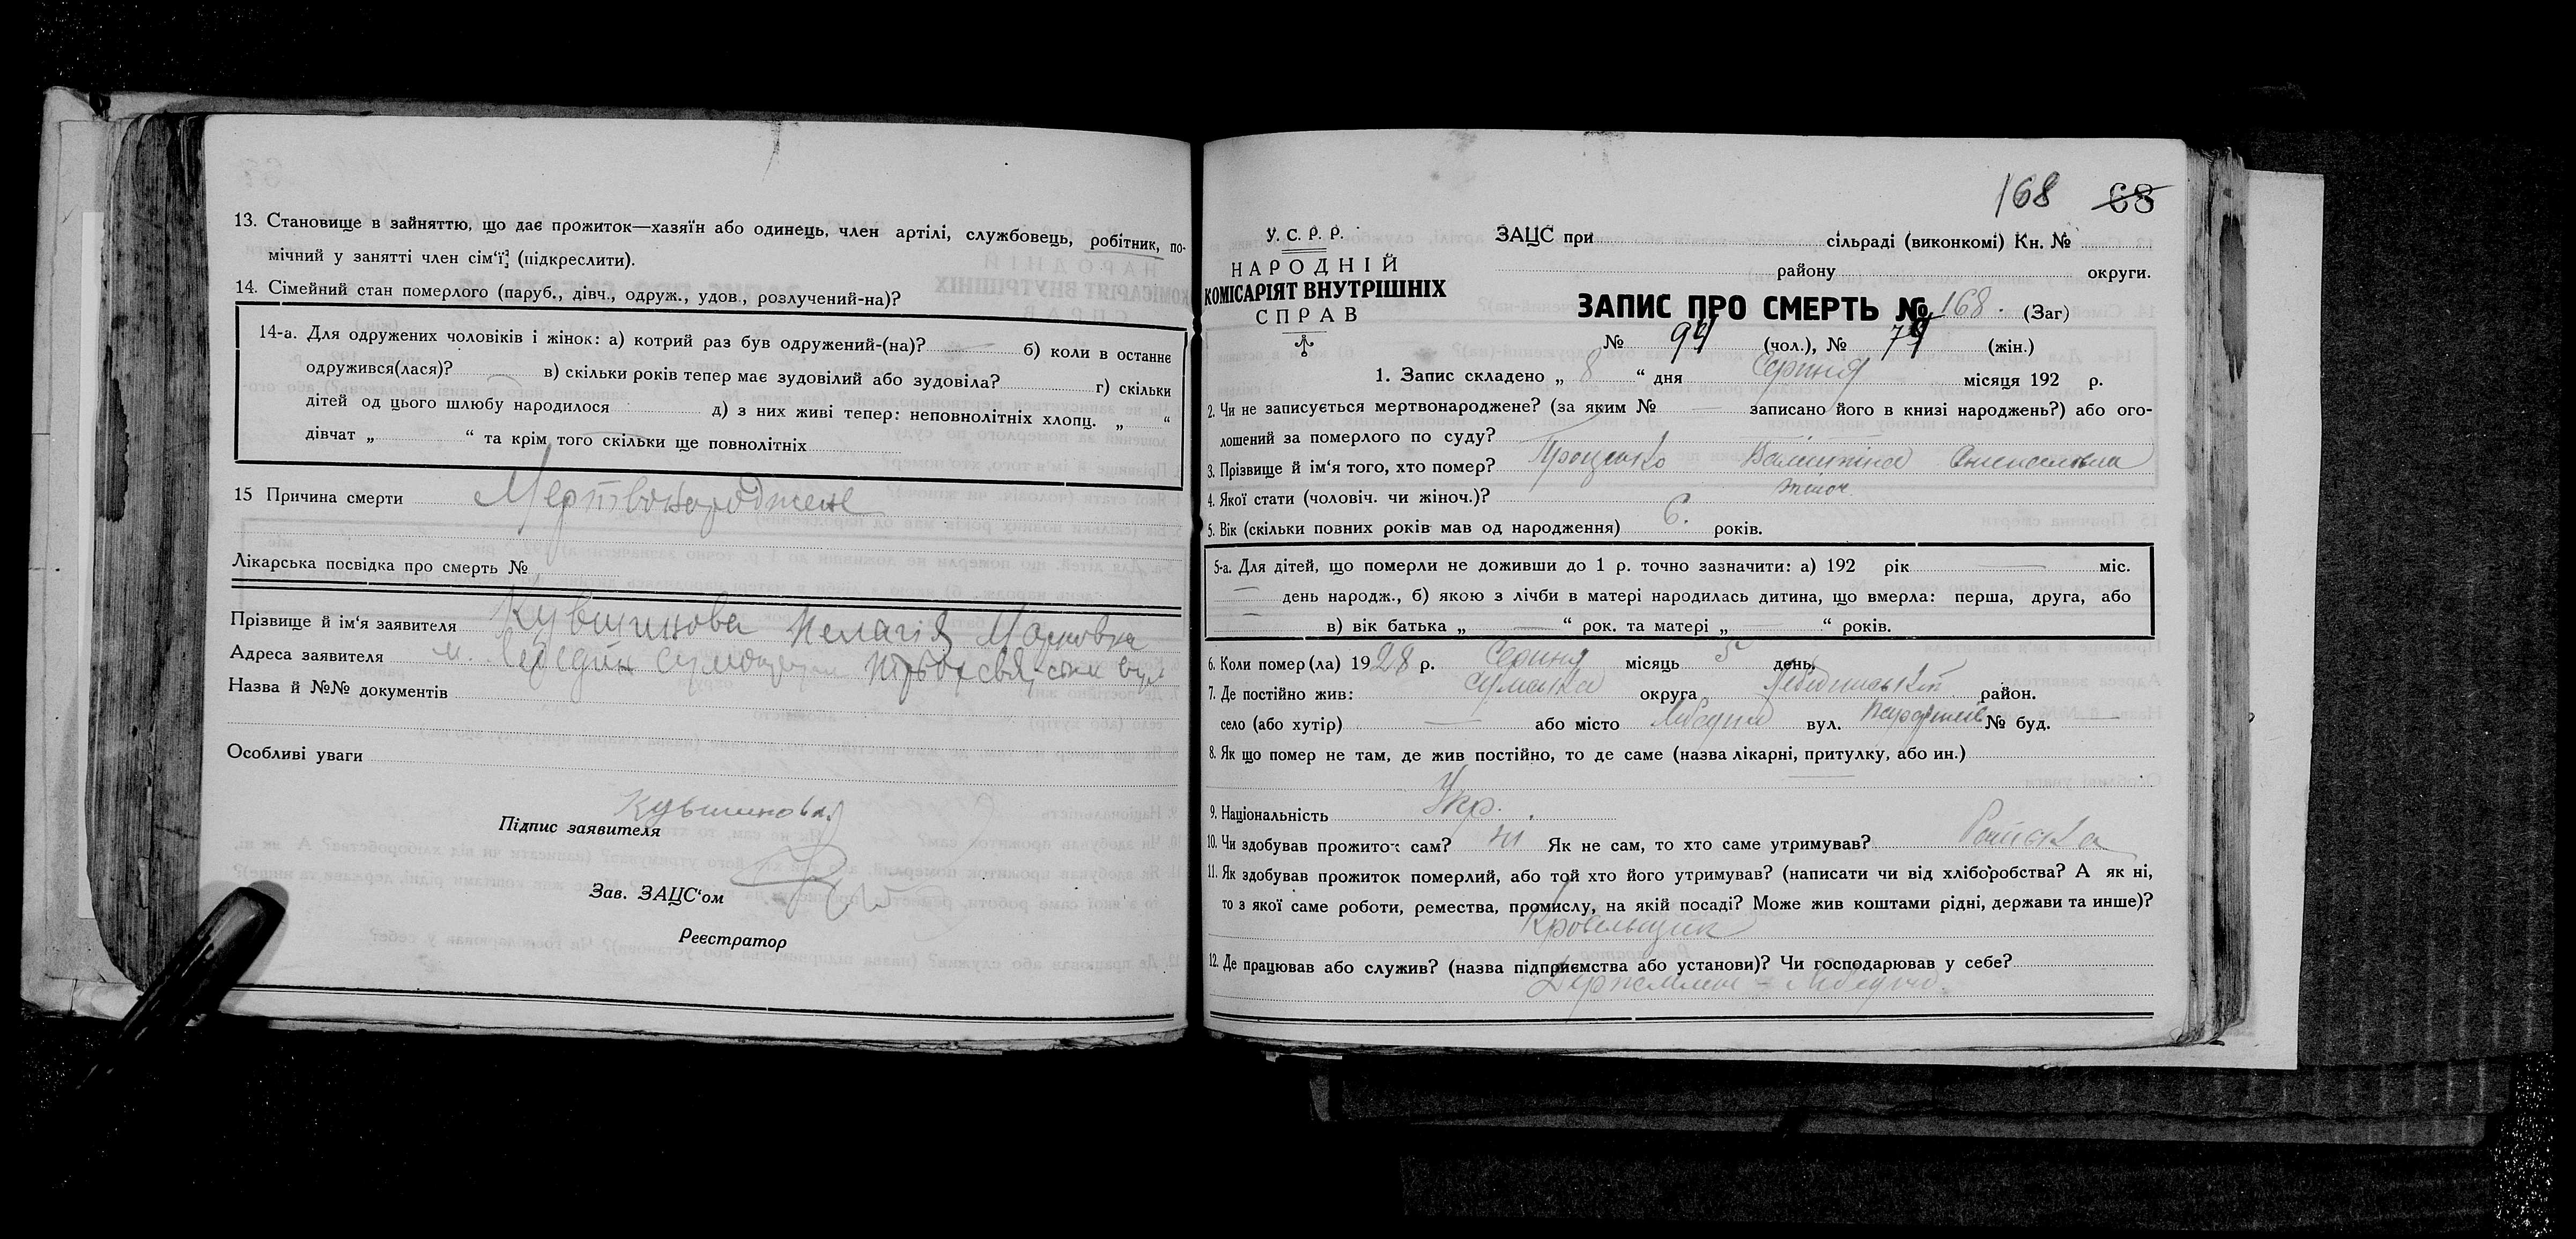 13. Становище в зайняттю, що дає прожиток—хазяїн або одинець, член артілі, службовець, робітник, по-
мічний у занятті член сім'ї (підкреслити).
14. Сімейний стан померлого (паруб., дівч., одруж., удов., розлучений-на)?
14-а. Для одружених чоловіків і жінок: а) котрий раз був одружений-(на)? б) коли в останнє
одружився(лася)? в) скільки років тепер має зудовілий або зудовіла? г) скільки
дітей од цього шлюбу народилося д) з них живі тепер: неповнолітніх хлопц. „ “
дівчат „ “ та крім того скільки ще повнолітніх
15 Причина смерти Мертвонароджене
Лікарська посвідка про смерть №
Прізвище й ім'я заявителя Кувшинова Пелагія Марковна
Адреса заявителя м. Лебедин
Назва й №№ документів
Особливі уваги
Кувшинова
Підпис заявителя
Зав. ЗАЦС'ом
Реєстратор
168 68
У. С. Р. Р.
НАРОДНІЙ
КОМІСАРІЯТ ВНУТРІШНІХ
СПРАВ
ЗАЦС при сільраді (виконкомі) Кн. №
району округи.
ЗАПИС ПРО СМЕРТЬ № 168. (Заг)
№ 94 (чол.), № 74 (жін.)
1. Запис складено „ 8 “ дня Серпня місяця 192 р.
2. Чи не записується мертвонароджене? (за яким № — записано його в книзі народжень?) або ого-
лошений за померлого по суду?
3. Прізвище й ім'я того, хто помер? Проценко Валентина
4. Якої стати (чоловіч. чи жіноч.)? жіноч.
5. Вік (скільки повних років мав од народження) 6. років.
5-а. Для дітей, що померли не доживши до 1 р. точно зазначити: а) 192 рік — міс.
— день народж., б) якою з лічби в матері народилась дитина, що вмерла: перша, друга, або
— в) вік батька „ — “ рок. та матері „ — “ років.
6. Коли помер(ла) 1928 р. Серпня місяць 5 день.
7. Де постійно жив: Сумська округа Лебединський район.
село (або хутір) — або місто Лебедин вул. № буд. —
8. Як що помер не там, де жив постійно, то де саме (назва лікарні, притулку, або ин.)
—
9. Національність Укр.
10. Чи здобував прожиток сам? ні Як не сам, то хто саме утримував?
11. Як здобував прожиток померлий, або той хто його утримував? (написати чи від хліборобства? А як ні,
то з якої саме роботи, ремества, промислу, на якій посаді? Може жив коштами рідні, держави та инше)?
Кровельщик
12. Де працював або служив? (назва підприємства або установи)? Чи господарював у себе?
Держмлин - Лебедин.